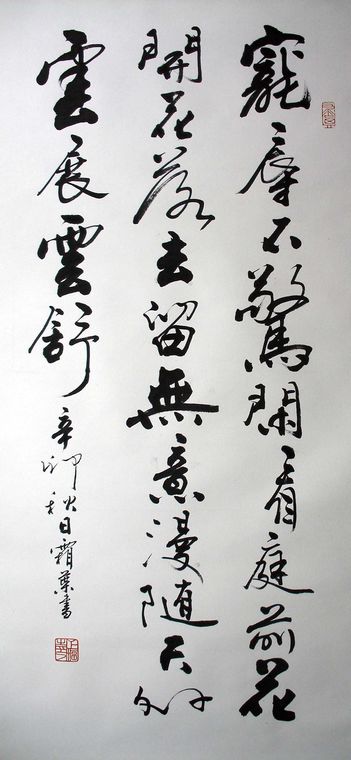 寵辱不驚閑看庭前花
開花落去留無意漫随天外
雲展雲舒
辛卯秋日霜葉書